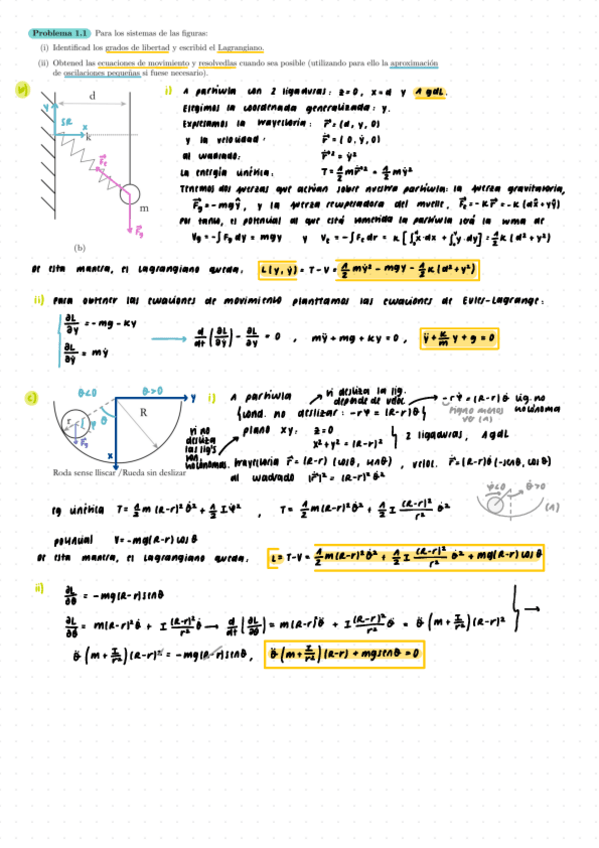 Problema 1.1 Para los sistemas de las figuras:
(i) Identificad los grados de libertad y escribid el Lagrangiano.
(ii) Obtened las ecuaciones de movimiento y resolvedlas cuando sea posible (utilizando para ello la aproximación
de oscilaciones pequeñas si fuese necesario).
b)
d
y
SR
x
k
F⃗e
m
F⃗g
(b)
i) 1 partícula con 2 ligaduras: z=0, x=d y 1 gdl.
Elegimos la coordenada generalizada: y.
Expresamos la trayectoria: r⃗ = (d, y, 0)
y la velocidad: ṙ⃗ = (0, ẏ, 0)
al cuadrado: ṙ⃗² = ẏ²
La energía cinética: T = 1/2 m ṙ⃗² = 1/2 m ẏ²
Tenemos dos fuerzas que actúan sobre nuestra partícula: la fuerza gravitatoria,
F⃗g = -mgŷ, y la fuerza recuperadora del muelle, F⃗e = -k r⃗ = -k (dx̂ + yŷ)
Por tanto, el potencial al que está sometida la partícula será la suma de
Vg = -∫Fg dy = mgy y Ve = -∫Fe dr = k [∫x·dx + ∫y·dy] = 1/2 k (d² + y²)
De esta manera, el lagrangiano queda: L(y, ẏ) = T - V = 1/2 mẏ² - mgy - 1/2 k (d² + y²)
ii) Para obtener las ecuaciones de movimiento planteamos las ecuaciones de Euler-Lagrange:
∂L/∂y = -mg - ky
∂L/∂ẏ = mẏ
→ d/dt (∂L/∂ẏ) - ∂L/∂y = 0 , mÿ + mg + ky = 0 , ÿ + k/m y + g = 0
c)
θ<0 θ>0
y
R
r
θ
F⃗g
x
Roda sense lliscar /Rueda sin deslizar
i) 1 partícula
si desliza la lig. depende de veloc
{cond. no deslizar: -rΨ = (R-r)θ}
-rΨ̇ = (R-r)θ̇ lig. no holónoma
signo menos va (1)
si no desliza las lig's son holónomas.
plano xy: z=0
x²+y² = (R-r)²
2 ligaduras, 1 gdl
trayectoria r⃗ = (R-r) (cosθ, senθ) , veloc. ṙ⃗ = (R-r)θ̇ (-senθ, cosθ)
al cuadrado |ṙ⃗|² = (R-r)² θ̇²
Ψ̇<0 θ̇>0
(1)
eg cinética T = 1/2 m (R-r)² θ̇² + 1/2 I Ψ̇² , T = 1/2 m(R-r)² θ̇² + 1/2 I (R-r)²/r² θ̇²
potencial V = -mg(R-r) cosθ
De esta manera, el lagrangiano queda: L = T-V = 1/2 m(R-r)² θ̇² + 1/2 I (R-r)²/r² θ̇² + mg(R-r) cosθ
ii) ∂L/∂θ = -mg(R-r)senθ
∂L/∂θ̇ = m(R-r)²θ̇ + I (R-r)²/r² θ̇ → d/dt (∂L/∂θ̇) = m(R-r)²θ̈ + I (R-r)²/r² θ̈ = θ̈ (m + I/r²)(R-r)²
θ̈ (m + I/r²)(R-r)² = -mg(R-r)senθ , θ̈ (m + I/r²)(R-r) + mg senθ = 0